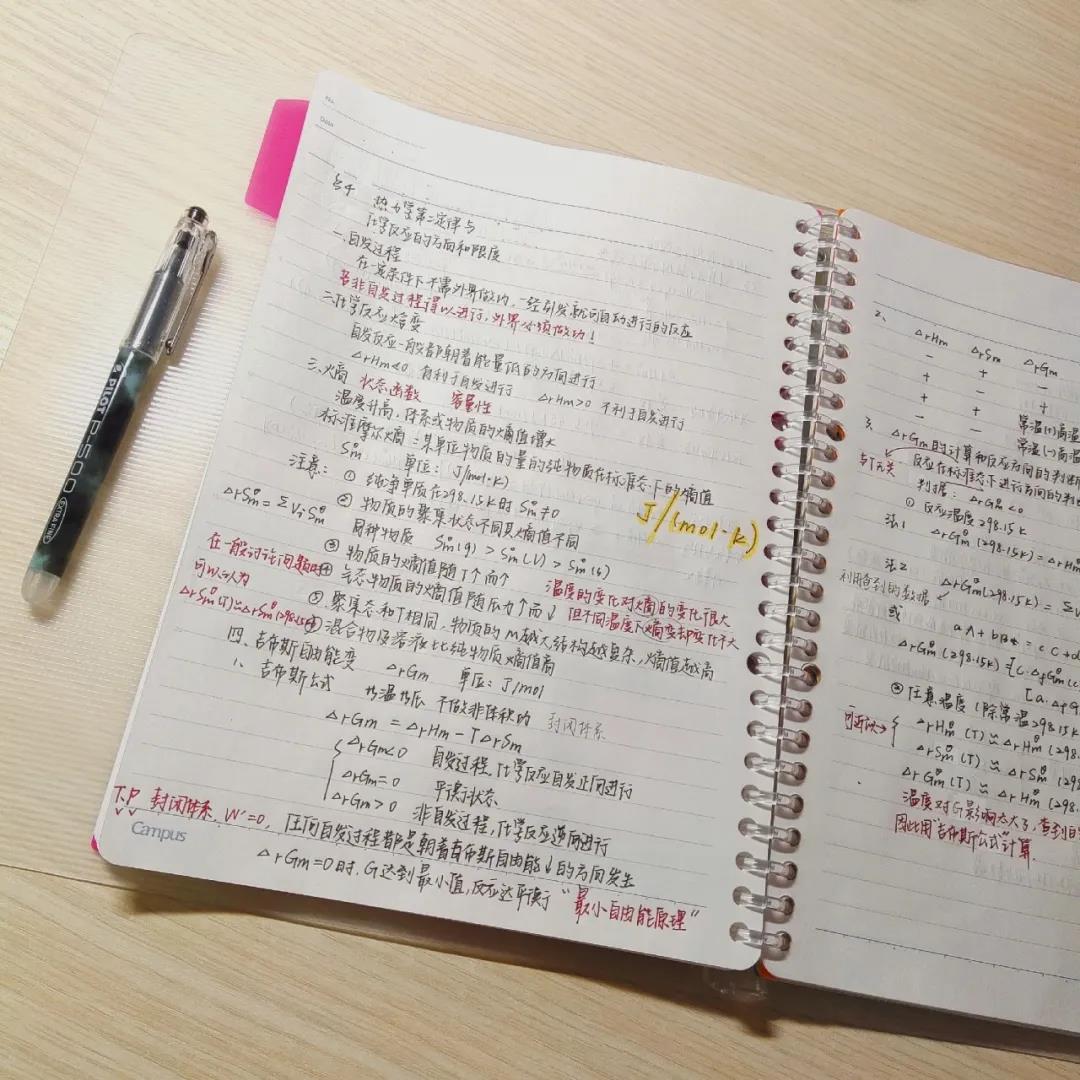 PILOT P-500
EXTRA FINE
No.
Date
§4 热力学第二定律与
化学反应的方向和限度
一、自发过程
在一定条件下不需外界做功，一经引发就可自动进行的反应
若非自发过程得以进行，外界必须做功！
二、化学反应焓变
自发反应一般都朝着能量低的方向进行
△rHm<0 有利于自发进行 △rHm>0 不利于自发进行
三、熵 状态函数 容量性
温度升高，体系或物质的熵值增大
标准摩尔熵：某单位物质的量的纯物质在标准态下的熵值
Smθ 单位：J/(mol·k)
J/(mol·k)
注意：① 纯净单质在298.15k时 Smθ≠0
△rSmθ=ΣViSmθ
② 物质的聚集状态不同其熵值不同
同种物质 Smθ(g)>Smθ(l)>Smθ(s)
③ 物质的熵值随T↑而↑
温度的变化对熵的变化很大
但不同温度下熵变却变化不大
在一般讨论问题时
可以认为
△rSmθ(T)≈△rSmθ(298.15k)
④ 气态物质的熵值随压力↑而↓
⑤ 聚集态和T相同，物质的M越大结构越复杂，熵值越高
⑥ 混合物及溶液比纯物质熵值高
四、吉布斯自由能变 △rGm 单位：J/mol
1、吉布斯公式 均温均压 不做非体积功 封闭体系
△rGm = △rHm - T△rSm
△rGm<0 自发过程，化学反应自发正向进行
△rGm=0 平衡状态
△rGm>0 非自发过程，化学反应逆向进行
T.P 封闭体系，W'=0，任何自发过程都是朝着吉布斯自由能↓的方向发生
△rGm=0时，G达到最小值，反应达平衡 “最小自由能原理”
Campus
2、 △rHm △rSm △rGm
- + -
+ - +
+ + 常温(+)高温
- - 常温(-)高温
3、△rGm的计算和反应方向的判断
与T无关
反应在标准态下进行方向的判
判据：△rGmθ<0
① 反应温度298.15k
法1
△rGmθ(298.15k)=△rHm
法2
利用查到的数据
△rGmθ(298.15k)=ΣV
或 aA+bB⇌cC+d
△rGmθ(298.15k)=[c·△fGmθ(c
[a·△fG
② 注意温度(除常温298.15k
可近似→
△rHmθ(T)≈△rHmθ(298
△rSmθ(T)≈△rSmθ(298
△rGmθ(T)≈△rHmθ(298.
温度对G影响太大了，查到的
因此用“吉布斯公式”计算.